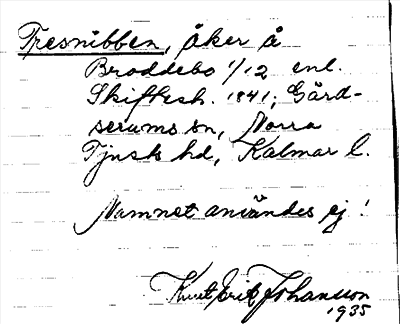 Tresnibben, åker å
Broddebo 1/12 enl.
Skiftesh. 1841; Gård-
serums sn, Norra
Tjusts hd, Kalmar l.
Namnet användes ej!
Knut Erik Johansson
1935